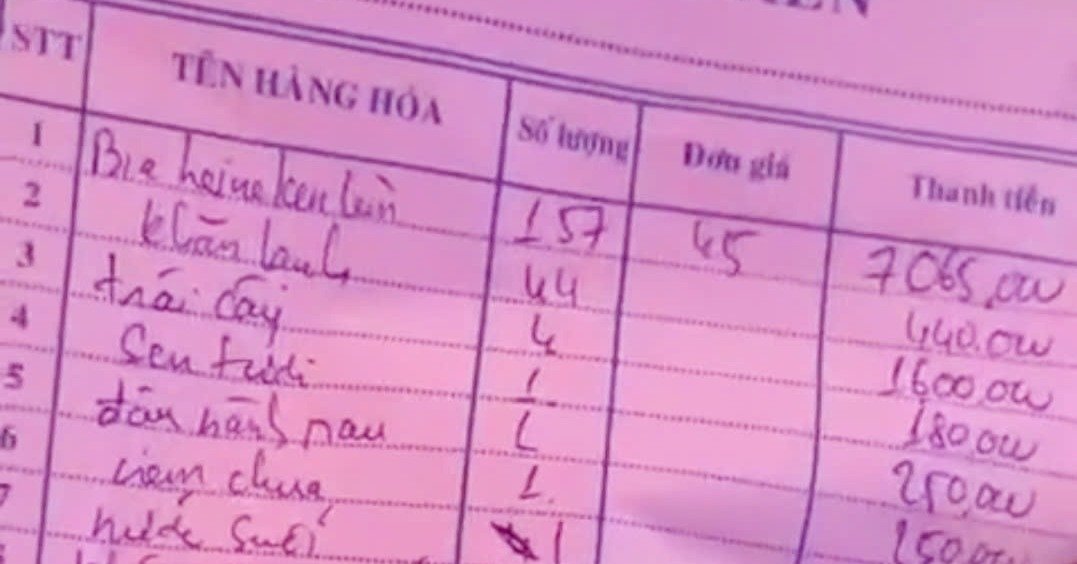 STT TÊN HÀNG HÓA Số lượng Đơn giá Thanh tiền
1 Bia heineken lùn 157 45 7065.000
2 khăn lạnh 44 440.000
3 trái cây 4 1600.000
4 Sen tươi 1 180.000
5 1 250.000
6 nem chua 1. 150.000
7 nước suối 1